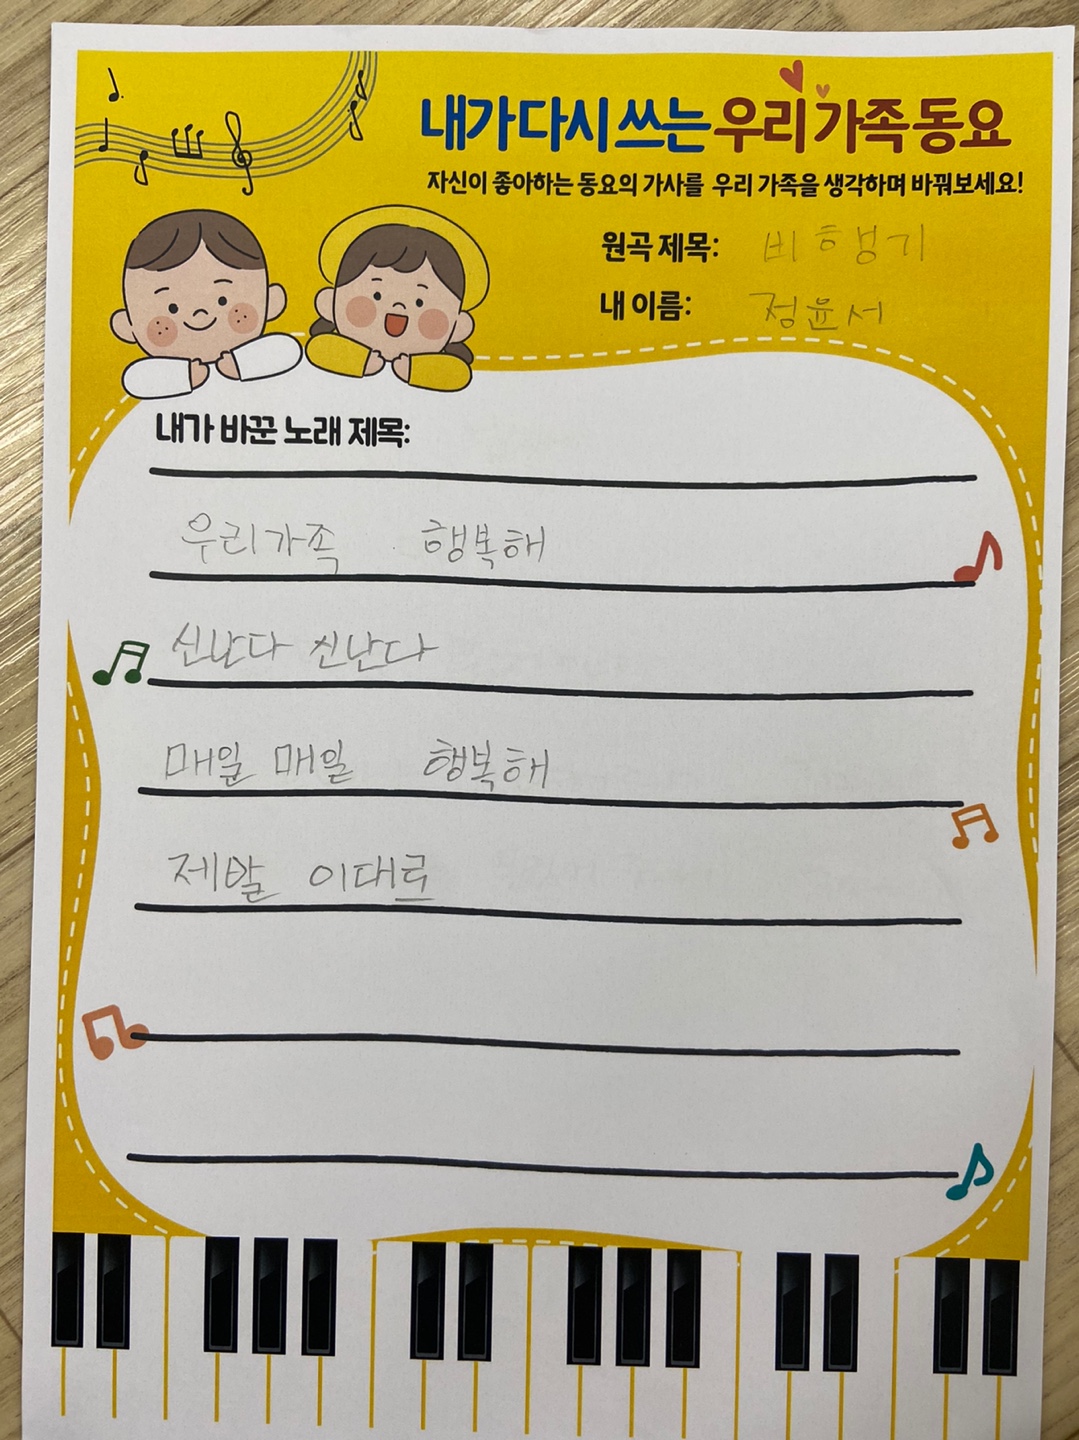 내가 다시 쓰는 우리 가족 동요
자신이 좋아하는 동요의 가사를 우리 가족을 생각하며 바꿔보세요!
원곡 제목: 비행기
내 이름: 정윤서
내가 바꾼 노래 제목:
우리가족 행복해
신난다 신난다
매일 매일 행복해
제발 이대로